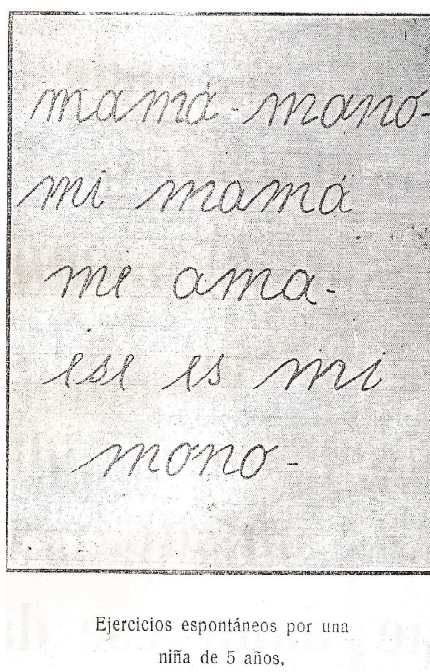 mamá - mano -
mi mamá
me ama -
ese es mi
mono -
Ejercicios espontáneos por una
niña de 5 años.